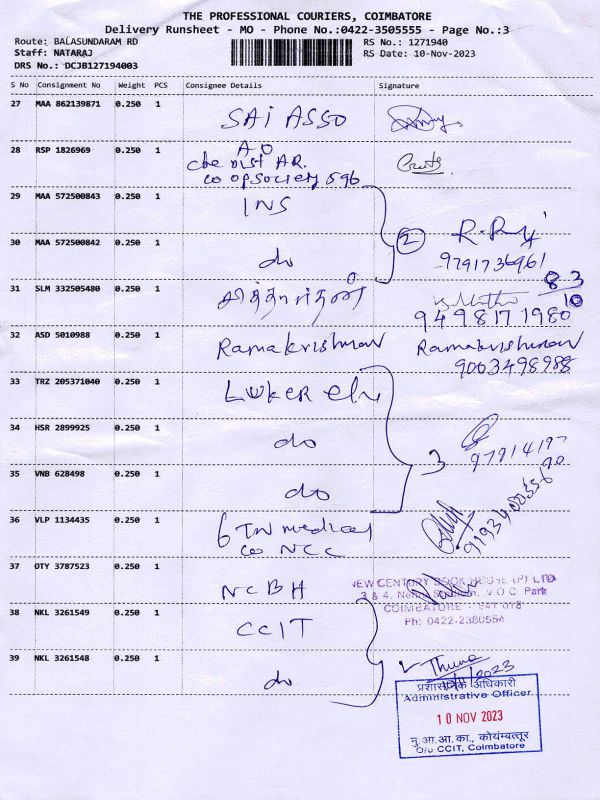 THE PROFESSIONAL COURIERS, COIMBATORE
Delivery Runsheet - MO - Phone No.:0422-3505555 - Page No.:3
Route: BALASUNDARAM RD RS No.: 1271940
Staff: NATARAJ RS Date: 10-Nov-2023
DRS No.: DCJB127194003
S No Consignment No Weight PCS Consignee Details Signature
27 MAA 862139871 0.250 1 SAI ASSO
28 RSP 1826969 0.250 1 AD
AR.
co opsociety 596
29 MAA 572500843 0.250 1 INS
30 MAA 572500842 0.250 1 do 2 9791736961
31 SLM 332505480 0.250 1 83
10
9498171980
32 ASD 5010988 0.250 1 Ramakrishnan Ramakrishnan
9003498988
33 TRZ 205371040 0.250 1 LUKER
34 HSR 2899925 0.250 1 do 3
35 VNB 628498 0.250 1 do
36 VLP 1134435 0.250 1 6 TN medical
co NCC
37 OTY 3787523 0.250 1 NCBH
NEW CENTURY BOOK HOUSE (P) LTD
3 & 4, V O C Park
COIMBATORE - 641 018
Ph: 0422-2380554
38 NKL 3261549 0.250 1 CCIT
39 NKL 3261548 0.250 1 do
प्रशासनिक अधिकारी
Administrative Officer
10 NOV 2023
मु.आ.आ.का., कोयंबत्तूर
O/o CCIT, Coimbatore